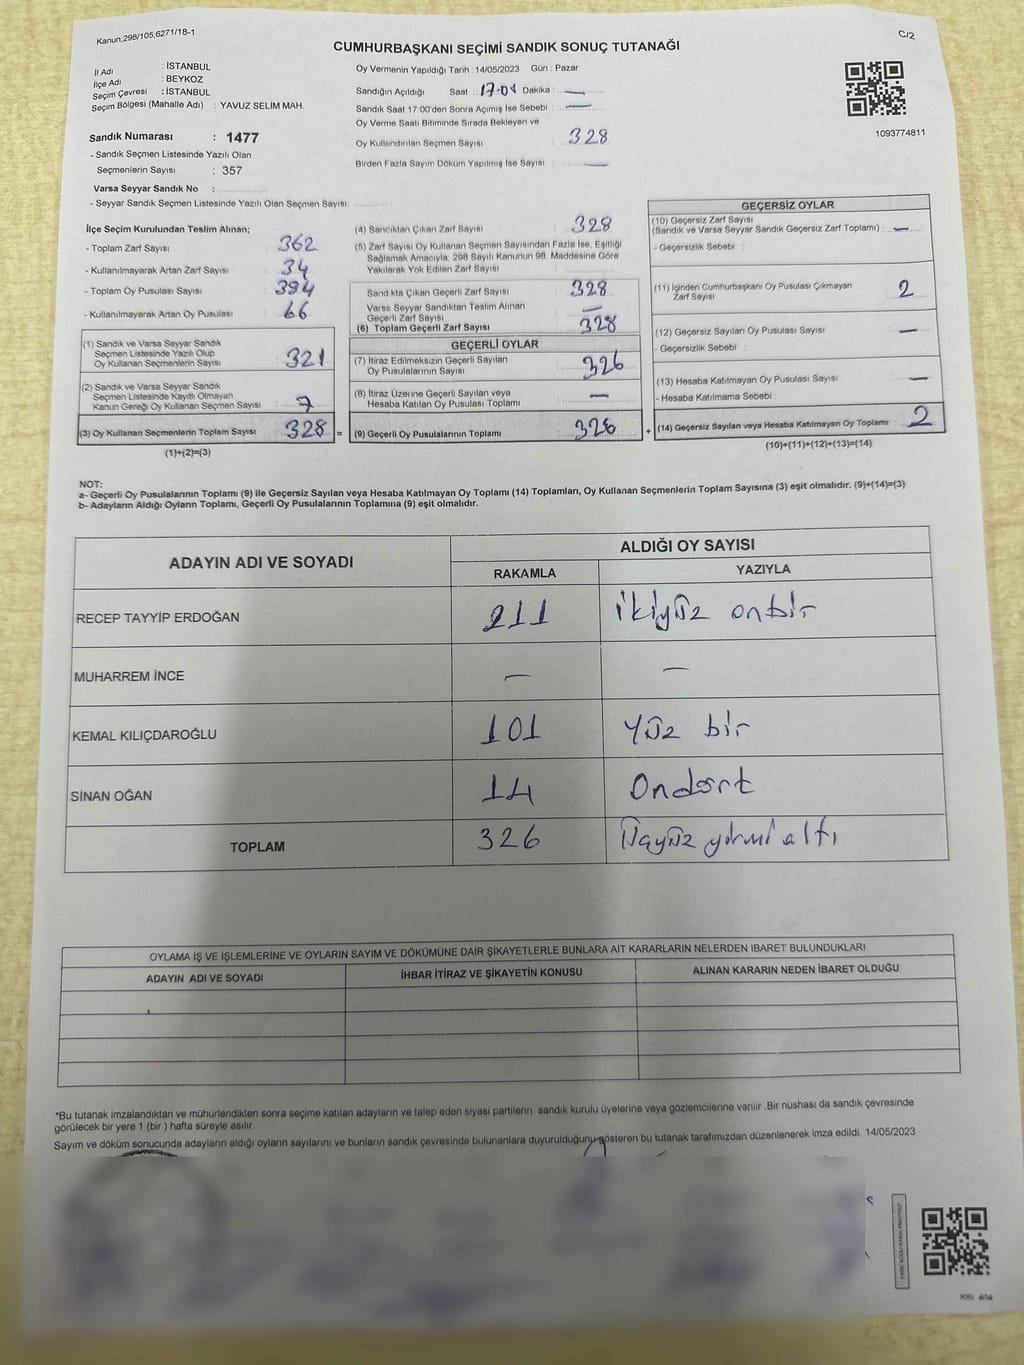 Kanun,298/105,6271/18-1
C/2
CUMHURBAŞKANI SEÇİMİ SANDIK SONUÇ TUTANAĞI
İl Adı : İSTANBUL
İlçe Adı : BEYKOZ
Seçim Çevresi : İSTANBUL
Seçim Bölgesi (Mahalle Adı) : YAVUZ SELİM MAH.
Sandık Numarası : 1477
- Sandık Seçmen Listesinde Yazılı Olan
Seçmenlerin Sayısı : 357
Varsa Seyyar Sandık No :
- Seyyar Sandık Seçmen Listesinde Yazılı Olan Seçmen Sayısı:
Oy Vermenin Yapıldığı Tarih : 14/05/2023 Gün : Pazar
Sandığın Açıldığı Saat : 17.01 Dakika : —
Sandık Saat 17:00'den Sonra Açımış İse Sebebi : —
Oy Verme Saati Bitiminde Sırada Bekleyen ve
Oy Kullandırılan Seçmen Sayısı : 328
Birden Fazla Sayım Döküm Yapılmış İse Sayısı : —
1093774811
İlçe Seçim Kurulundan Teslim Alınan;
- Toplam Zarf Sayısı : 362
- Kullanılmayarak Artan Zarf Sayısı : 34
- Toplam Oy Pusulası Sayısı : 394
- Kullanılmayarak Artan Oy Pusulası : 66
(1) Sandık ve Varsa Seyyar Sandık
Seçmen Listesinde Yazılı Olup
Oy Kullanan Seçmenlerin Sayısı : 321
(2) Sandık ve Varsa Seyyar Sandık
Seçmen Listesinde Kayıtlı Olmayan
Kanun Gereği Oy Kullanan Seçmen Sayısı : 7
(3) Oy Kullanan Seçmenlerin Toplam Sayısı : 328 =
(1)+(2)=(3)
(4) Sandıktan Çıkan Zarf Sayısı : 328
(5) Zarf Sayısı Oy Kullanan Seçmen Sayısından Fazla İse, Eşitliği
Sağlamak Amacıyla, 298 Sayılı Kanunun 98. Maddesine Göre
Yakılarak Yok Edilen Zarf Sayısı :
Sandıkta Çıkan Geçerli Zarf Sayısı : 328
Varsa Seyyar Sandıktan Teslim Alınan
Geçerli Zarf Sayısı : —
(6) Toplam Geçerli Zarf Sayısı : 328
GEÇERLİ OYLAR
(7) İtiraz Edilmeksizin Geçerli Sayılan
Oy Pusulalarının Sayısı : 326
(8) İtiraz Üzerine Geçerli Sayılan veya
Hesaba Katılan Oy Pusulası Toplamı : —
(9) Geçerli Oy Pusulalarının Toplamı : 326 +
GEÇERSİZ OYLAR
(10) Geçersiz Zarf Sayısı
(Sandık ve Varsa Seyyar Sandık Geçersiz Zarf Toplamı) : —
- Geçersizlik Sebebi :
(11) İçinden Cumhurbaşkanı Oy Pusulası Çıkmayan
Zarf Sayısı : 2
(12) Geçersiz Sayılan Oy Pusulası Sayısı : —
- Geçersizlik Sebebi :
(13) Hesaba Katılmayan Oy Pusulası Sayısı : —
- Hesaba Katılmama Sebebi :
(14) Geçersiz Sayılan veya Hesaba Katılmayan Oy Toplamı : 2
(10)+(11)+(12)+(13)=(14)
NOT:
a- Geçerli Oy Pusulalarının Toplamı (9) ile Geçersiz Sayılan veya Hesaba Katılmayan Oy Toplamı (14) Toplamları, Oy Kullanan Seçmenlerin Toplam Sayısına (3) eşit olmalıdır. (9)+(14)=(3)
b- Adayların Aldığı Oyların Toplamı, Geçerli Oy Pusulalarının Toplamına (9) eşit olmalıdır.
ADAYIN ADI VE SOYADI
ALDIĞI OY SAYISI
RAKAMLA YAZIYLA
RECEP TAYYİP ERDOĞAN 211 ikiyüz onbir
MUHARREM İNCE — —
KEMAL KILIÇDAROĞLU 101 Yüz bir
SİNAN OĞAN 14 Ondört
TOPLAM 326 Üçyüz yirmi altı
OYLAMA İŞ VE İŞLEMLERİNE VE OYLARIN SAYIM VE DÖKÜMÜNE DAİR ŞİKAYETLERLE BUNLARA AİT KARARLARIN NELERDEN İBARET BULUNDUKLARI
ADAYIN ADI VE SOYADI İHBAR İTİRAZ VE ŞİKAYETİN KONUSU ALINAN KARARIN NEDEN İBARET OLDUĞU
*Bu tutanak imzalandıktan ve mühürlendikten sonra seçime katılan adayların ve talep eden siyasi partilerin sandık kurulu üyelerine veya gözlemcilerine verilir .Bir nüshası da sandık çevresinde
görülecek bir yere 1 (bir ) hafta süreyle asılır.
Sayım ve döküm sonucunda adayların aldığı oyların sayılarını ve bunların sandık çevresinde bulunanlara duyurulduğunu gösteren bu tutanak tarafımızdan düzenlenerek imza edildi. 14/05/2023